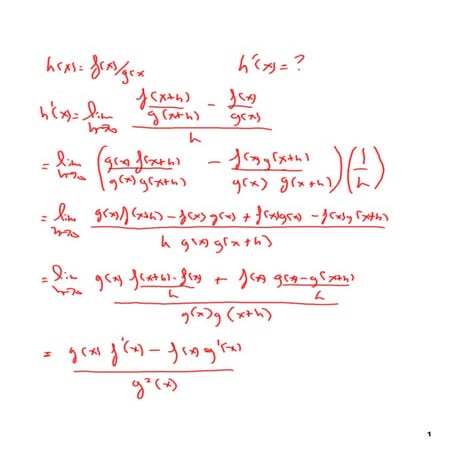 h(x) = f(x)/g(x    h'(x) = ?
h'(x) = lim_{h→0} (f(x+h)/g(x+h) − f(x)/g(x))/h
= lim_{h→0} (g(x) f(x+h)/g(x) g(x+h) − f(x) g(x+h)/g(x) g(x+h)) (1/h)
= lim_{h→0} (g(x) f(x+h) − f(x) g(x) + f(x) g(x) − f(x) g(x+h))/(h g(x) g(x+h))
= lim_{h→0} (g(x) (f(x+h) − f(x))/h + f(x) (g(x) − g(x+h))/h)/(g(x) g(x+h))
= (g(x) f'(x) − f(x) g'(x))/g²(x)
1